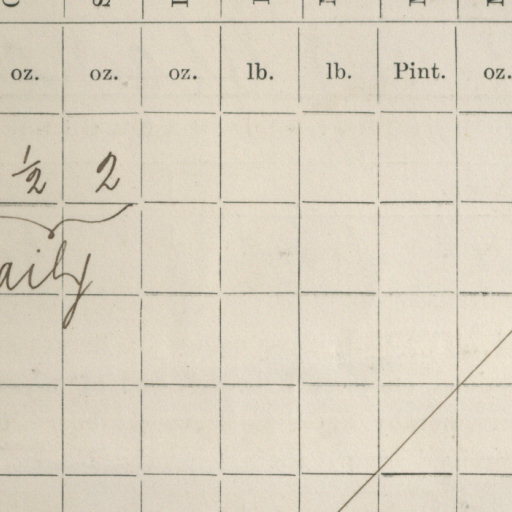 oz. oz. oz. lb. lb. Pint. oz.
½ 2
aily